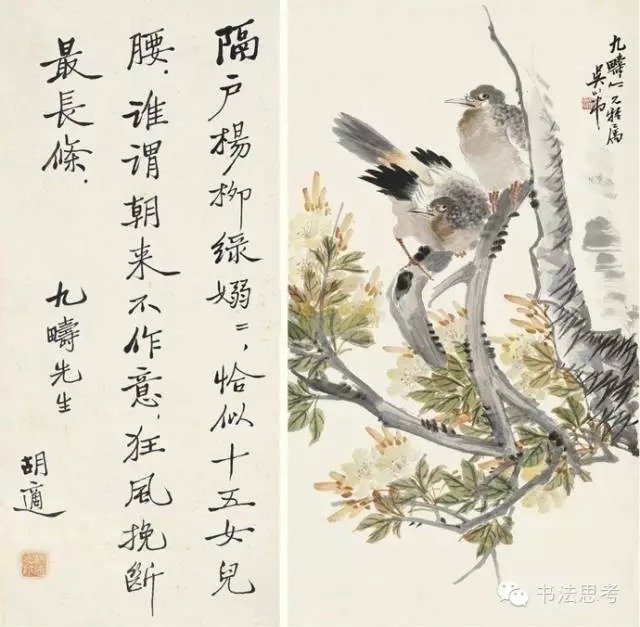 隔户楊柳綠嫋〻，恰似十五女兒
腰．谁謂朝来不作意，狂風挽断
最長條．
九疇先生
胡適
九疇仁兄属
吳
书法思考